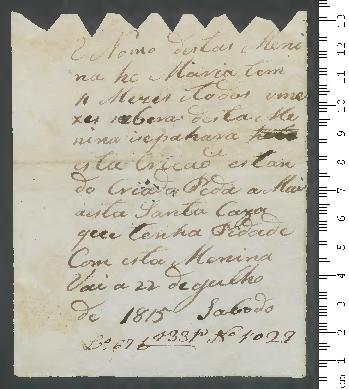 O Nome destas Meni
na he Maria tem
4 Mezes e todos os me
zes sabera desta Me
nina e se pagara
esta Criação estan
do Criada Peda a Mai
a esta Santa Caza
que tenha Piedade
Com esta Menina
Vai a 22 de Julho
de 1815 Sabado
Lo 67 f 233 No 1029